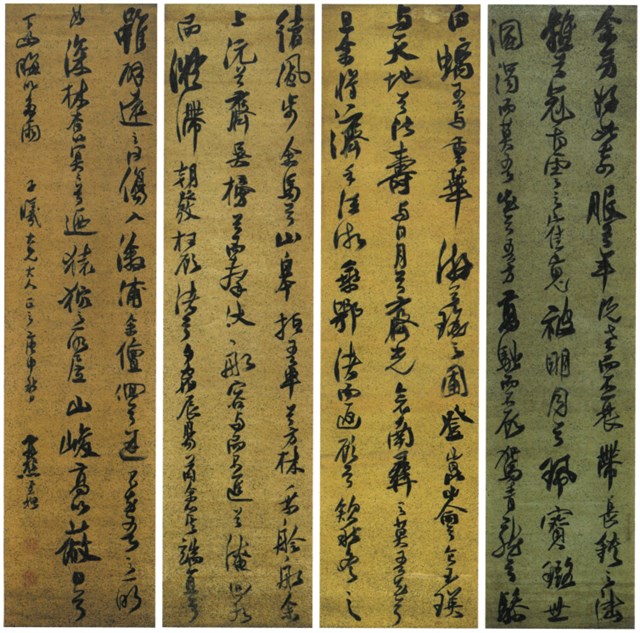 余幼好此奇服兮年既老而不衰帶長鋏之陸
離兮冠切雲之崔嵬被明月兮珮寶璐世
溷濁而莫吾知兮吾方高馳而不顧駕青虬兮驂
白螭吾與重華遊兮瑤之圃登崑崙兮食玉英
與天地兮比壽與日月兮齊光哀南夷之莫吾知兮
旦余將濟乎江湘乘鄂渚而返顧兮欸秋冬之
緒風步余馬兮山皋抵余車兮方林乘舲船余
上沅兮齊吳榜而擊汰船容與而不進兮淹回水
而凝滯朝發枉渚兮夕宿辰陽苟余心其端直兮
雖僻遠之何傷入漵浦余儃佪兮迷不知吾之所
如深林杳以冥冥兮迺猿狖之所居山峻高以蔽日兮
下幽晦以多雨 子曦 大人正之庚申